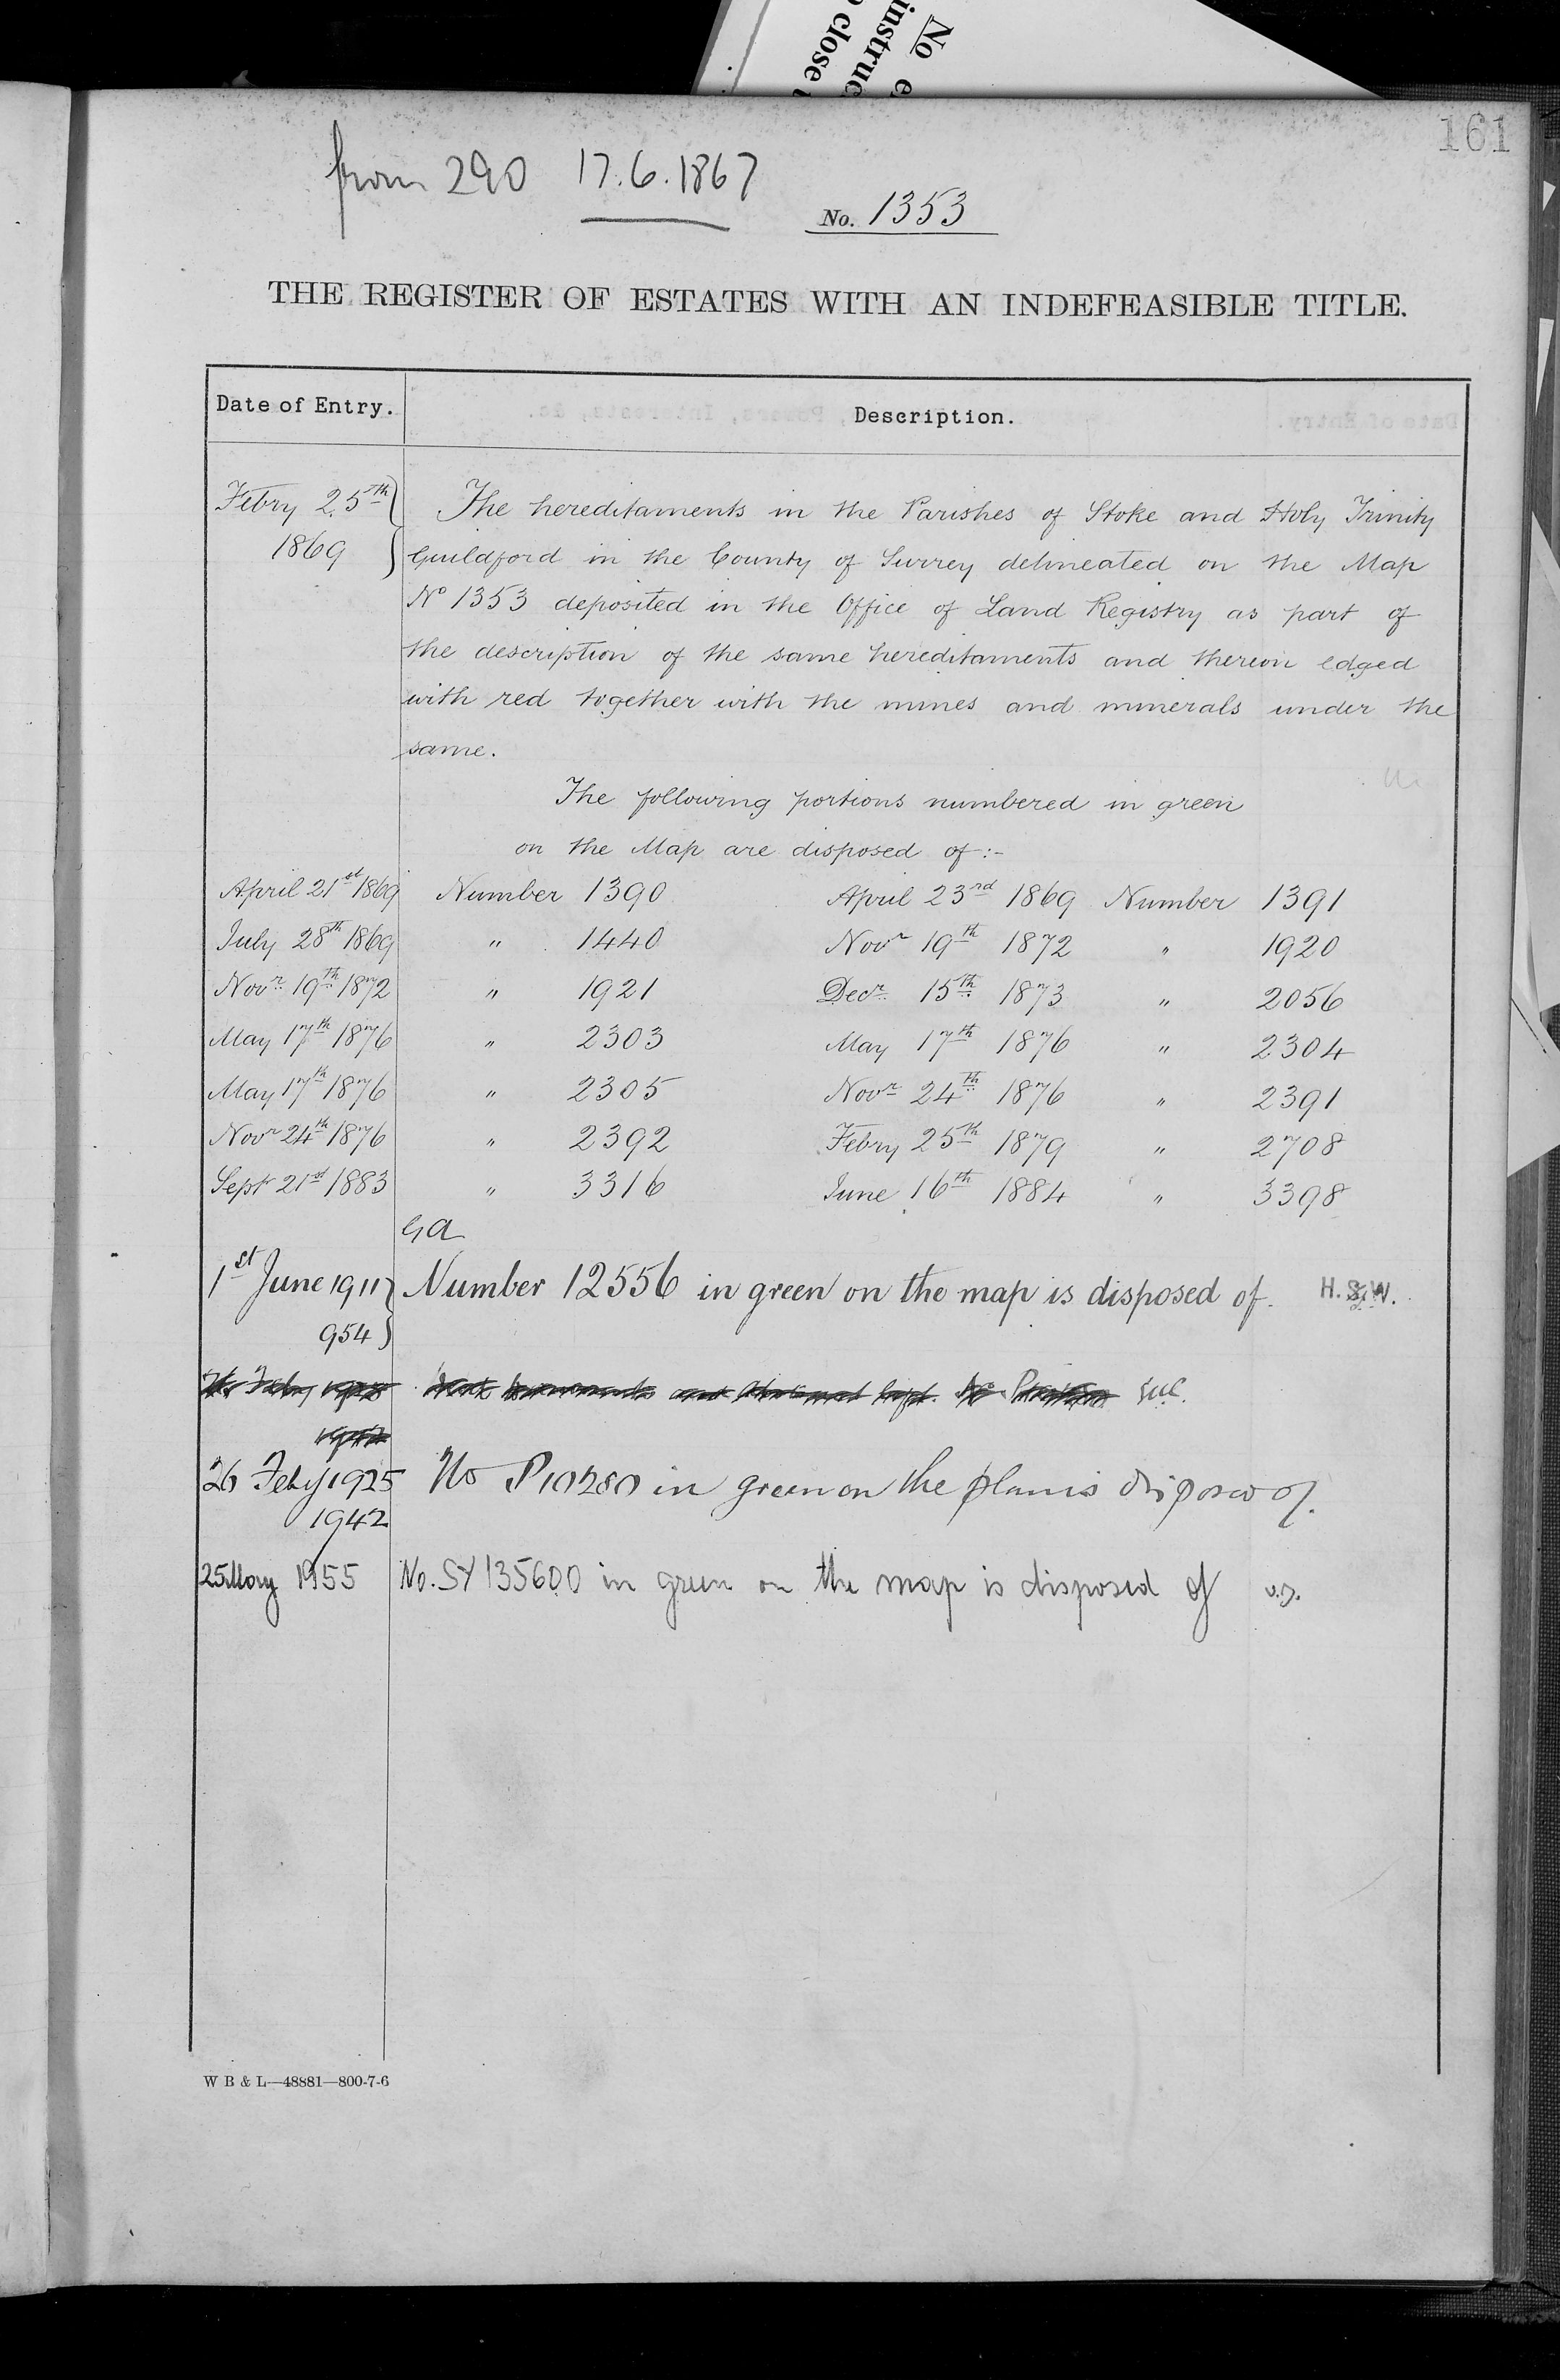 No e
instruc
close
161
from 290 17.6.1867
No. 1353
THE REGISTER OF ESTATES WITH AN INDEFEASIBLE TITLE.
Date of Entry. Description.
Febry 25th The hereditaments in the Parishes of Stoke and Holy Trinity
1869 Guildford in the County of Surrey delineated on the Map
No 1353 deposited in the Office of Land Registry as part of
the description of the same hereditaments and thereon edged
with red together with the mines and minerals under the
same.
The following portions numbered in green
on the Map are disposed of:-
April 21st 1869 Number 1390 April 23rd 1869 Number 1391
July 28th 1869 " 1440 Novr 19th 1872 " 1920
Novr 19th 1872 " 1921 Decr 15th 1873 " 2056
May 17th 1876 " 2303 May 17th 1876 " 2304
May 17th 1876 " 2305 Novr 24th 1876 " 2391
Novr 24th 1876 " 2392 Febry 25th 1879 " 2708
Sept 21st 1883 " 3316 June 16th 1884 " 3398
GA
1st June 1911 Number 12556 in green on the map is disposed of. H.S.W.
954
26 Feby 1925 No P10280 in green on the plan is disposed of.
1942
25 May 1955 No. SY135600 in green on the map is disposed of
W B & L—48881—800-7-6